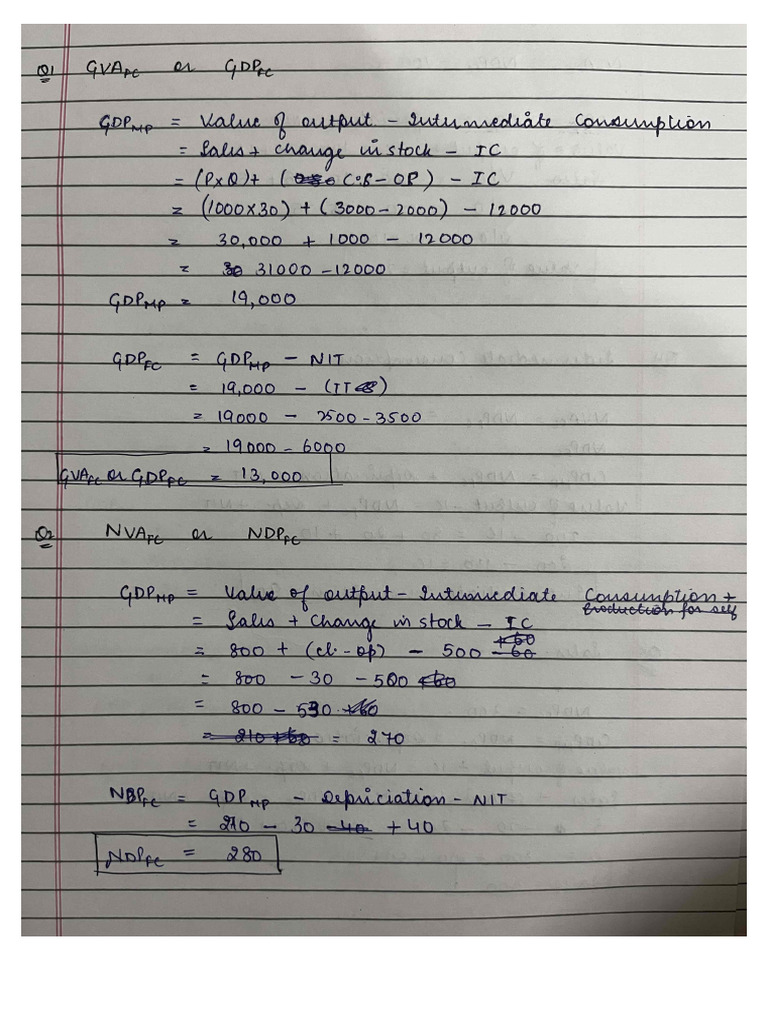 Q1 GVAFC or GDPFC
GDPMP = Value of output - Intermediate Consumption
= Sales + change in stock - IC
= (P×Q) + (C·S - OP) - IC
= (1000×30) + (3000-2000) - 12000
= 30,000 + 1000 - 12000
= 31000 - 12000
GDPMP = 19,000
GDPFC = GDPMP - NIT
= 19,000 - (IT)
= 19000 - 2500 - 3500
= 19000 - 6000
GVAFC or GDPFC = 13,000
Q2 NVAFC or NDPFC
GDPMP = Value of output - Intermediate Consumption +
Production for self
= Sales + Change in stock - IC
= 800 + (cl. - op) - 500
= 800 - 30 - 500
= 800 - 530
= 210 + 60 = 270
NDPFC = GDPMP - Depriciation - NIT
= 270 - 30 - 40 + 40
NDPFC = 280